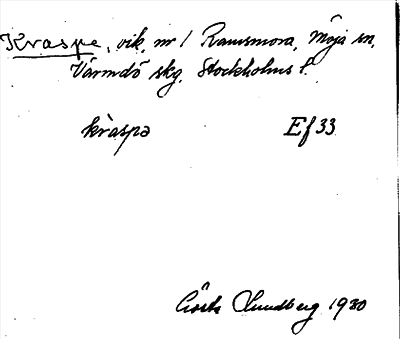 Kraspe, vik, nr 1 Ramsmora, Möja sn,
Värmdö skg. Stockholms l.
kràspə Ef 33
Gösta Sundberg 1930